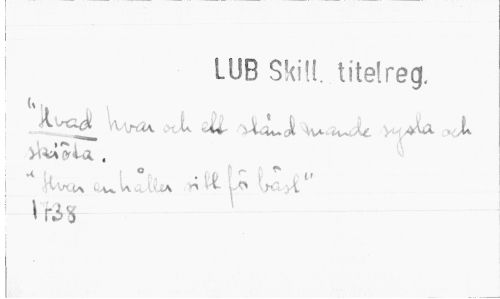 LUB Skill. titelreg.
"Hvad hvar och ett stånd mande sysla och
skiöta.
"Hvar en håller sitt för bäst"
1738